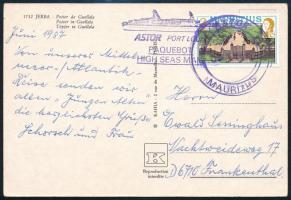 1712 JERBA - Potier de Guellala
Potter in Guellala
Töpfer in Guellala
Juni 1987
Von unserer Mittel-
meer-Atlantik-
Reise senden wir
allen "Jungen Alten"
die herzlichsten Grüße
Schorsch und Frau
ASTOR PORT LO
PAQUEBOT
HIGH SEAS MAIL
MAURITIUS
MAURITIUS
K
Reproduction
interdite
Herrn
Ewald Leininghaus
Nachtweideweg 17
D6710 Frankenthal